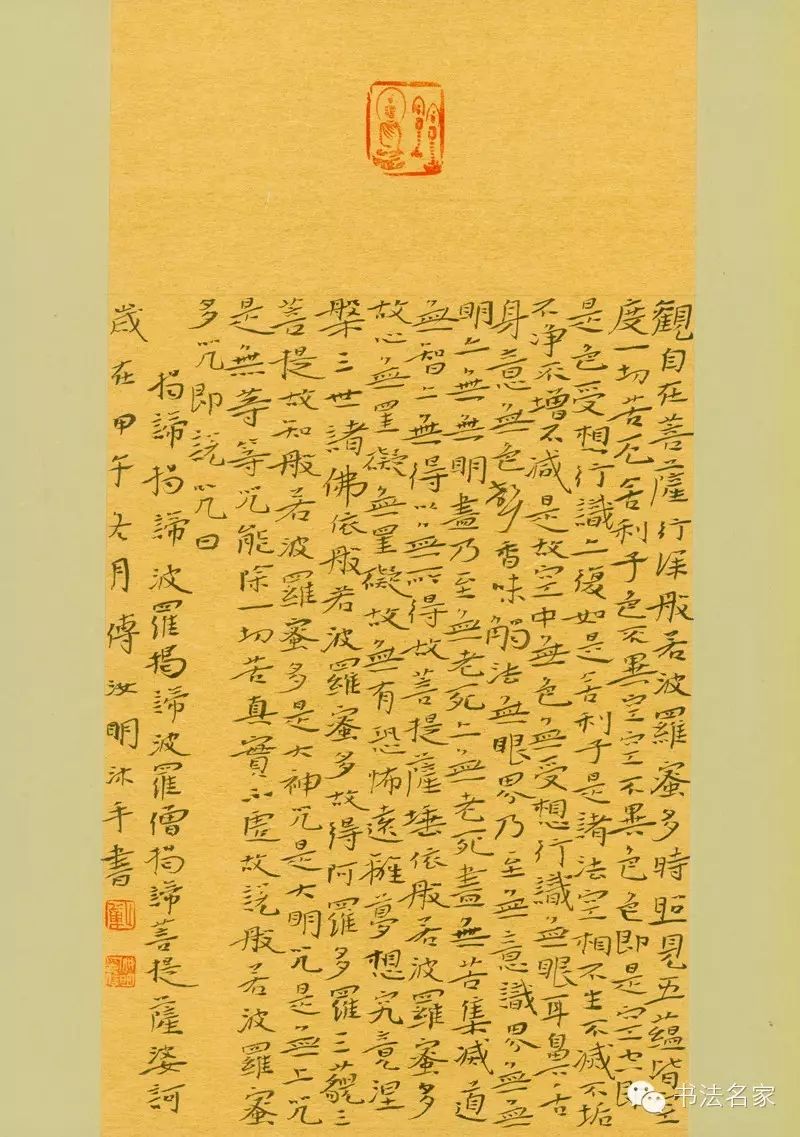 觀自在菩薩行深般若波羅蜜多時照見五蘊皆空
度一切苦厄舍利子色不異空空不異色色即是空空即
是色受想行識亦復如是舍利子是諸法空相不生不滅不垢
不淨不增不減是故空中無色無受想行識無眼耳鼻舌
身意無色聲香味觸法無眼界乃至無意識界無無
明亦無無明盡乃至無老死亦無老死盡無苦集滅道
無智亦無得以無所得故菩提薩埵依般若波羅蜜多
故心無罣礙無罣礙故無有恐怖遠離夢想究竟涅
槃三世諸佛依般若波羅蜜多故得阿羅多羅三藐三
菩提故知般若波羅蜜多是大神咒是大明咒是無上咒
是無等等咒能除一切苦真實不虛故說般若波羅蜜
多咒即說咒曰
揭諦揭諦波羅揭諦波羅僧揭諦菩提薩婆訶
歲在甲午冬月傅汝明沐手書
书法名家